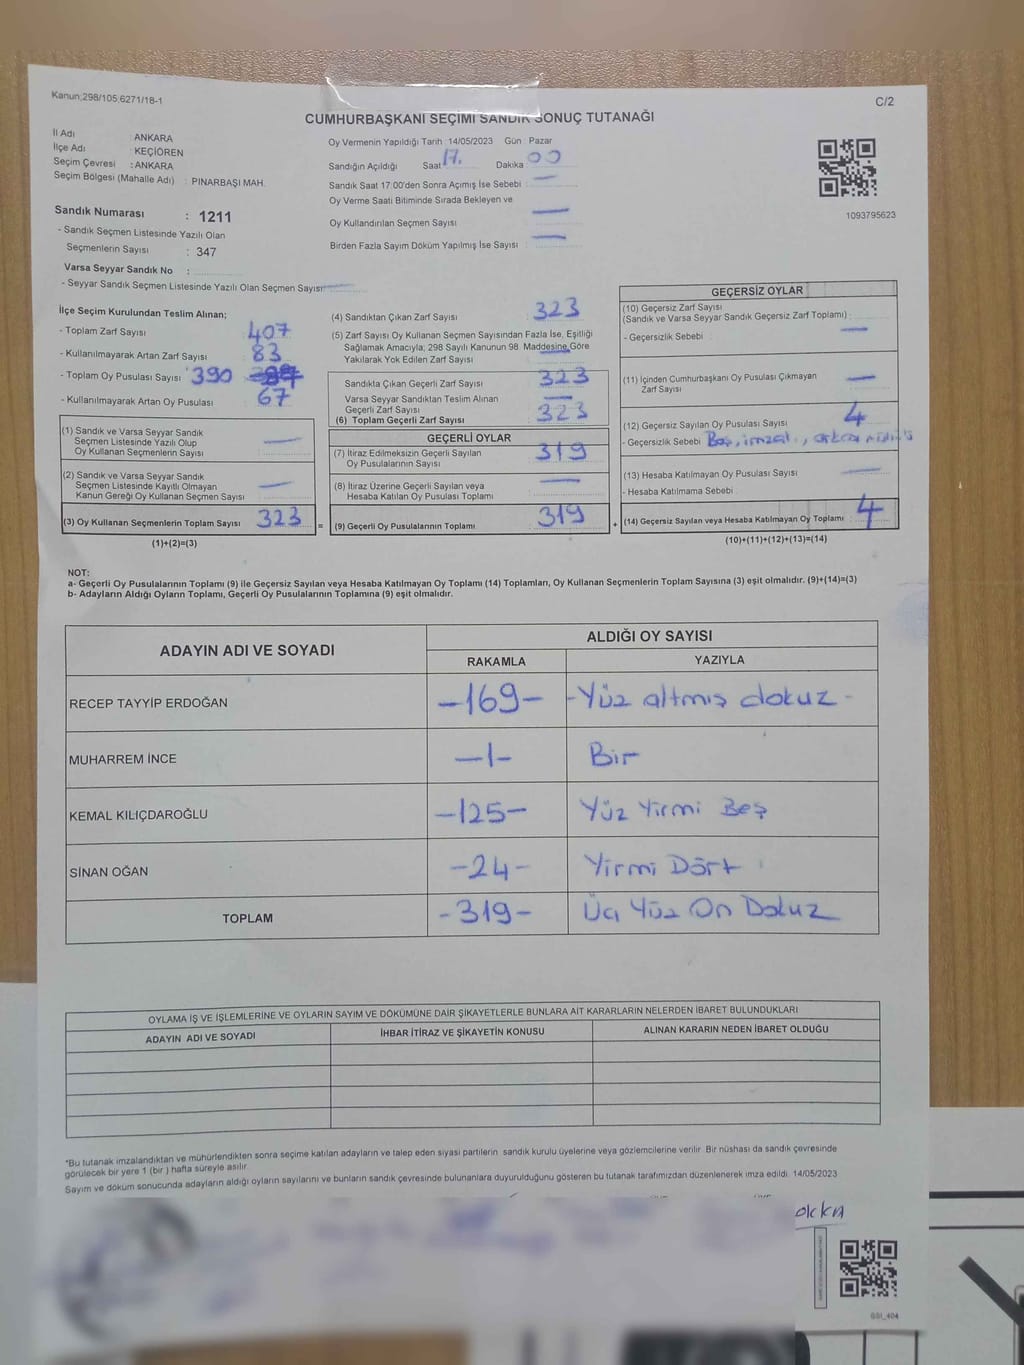 Kanun;298/105;6271/18-1
C/2
CUMHURBAŞKANI SEÇİMİ SANDIK SONUÇ TUTANAĞI
İl Adı ANKARA
İlçe Adı : KEÇİÖREN
Seçim Çevresi : ANKARA
Seçim Bölgesi (Mahalle Adı) : PINARBAŞI MAH.
Oy Vermenin Yapıldığı Tarih : 14/05/2023 Gün : Pazar
Sandığın Açıldığı Saat 17. Dakika 00
Sandık Saat 17:00'den Sonra Açımış İse Sebebi : —
Oy Verme Saati Bitiminde Sırada Bekleyen ve
Oy Kullandırılan Seçmen Sayısı —
Birden Fazla Sayım Döküm Yapılmış İse Sayısı : —
1093795623
Sandık Numarası : 1211
- Sandık Seçmen Listesinde Yazılı Olan
Seçmenlerin Sayısı : 347
Varsa Seyyar Sandık No :
- Seyyar Sandık Seçmen Listesinde Yazılı Olan Seçmen Sayısı: —
İlçe Seçim Kurulundan Teslim Alınan;
- Toplam Zarf Sayısı 407
- Kullanılmayarak Artan Zarf Sayısı 83
- Toplam Oy Pusulası Sayısı 390
- Kullanılmayarak Artan Oy Pusulası 67
(1) Sandık ve Varsa Seyyar Sandık
Seçmen Listesinde Yazılı Olup
Oy Kullanan Seçmenlerin Sayısı —
(2) Sandık ve Varsa Seyyar Sandık
Seçmen Listesinde Kayıtlı Olmayan
Kanun Gereği Oy Kullanan Seçmen Sayısı —
(3) Oy Kullanan Seçmenlerin Toplam Sayısı 323 =
(1)+(2)=(3)
(4) Sandıktan Çıkan Zarf Sayısı 323
(5) Zarf Sayısı Oy Kullanan Seçmen Sayısından Fazla İse, Eşitliği
Sağlamak Amacıyla; 298 Sayılı Kanunun 98. Maddesine Göre
Yakılarak Yok Edilen Zarf Sayısı —
Sandıkta Çıkan Geçerli Zarf Sayısı 323
Varsa Seyyar Sandıktan Teslim Alınan
Geçerli Zarf Sayısı —
(6) Toplam Geçerli Zarf Sayısı 323
GEÇERLİ OYLAR
(7) İtiraz Edilmeksizin Geçerli Sayılan
Oy Pusulalarının Sayısı 319
(8) İtiraz Üzerine Geçerli Sayılan veya
Hesaba Katılan Oy Pusulası Toplamı —
(9) Geçerli Oy Pusulalarının Toplamı 319 +
GEÇERSİZ OYLAR
(10) Geçersiz Zarf Sayısı
(Sandık ve Varsa Seyyar Sandık Geçersiz Zarf Toplamı) : —
- Geçersizlik Sebebi
(11) İçinden Cumhurbaşkanı Oy Pusulası Çıkmayan
Zarf Sayısı —
(12) Geçersiz Sayılan Oy Pusulası Sayısı 4
- Geçersizlik Sebebi Boş,
(13) Hesaba Katılmayan Oy Pusulası Sayısı —
- Hesaba Katılmama Sebebi
(14) Geçersiz Sayılan veya Hesaba Katılmayan Oy Toplamı : 4
(10)+(11)+(12)+(13)=(14)
NOT:
a- Geçerli Oy Pusulalarının Toplamı (9) ile Geçersiz Sayılan veya Hesaba Katılmayan Oy Toplamı (14) Toplamları, Oy Kullanan Seçmenlerin Toplam Sayısına (3) eşit olmalıdır. (9)+(14)=(3)
b- Adayların Aldığı Oyların Toplamı, Geçerli Oy Pusulalarının Toplamına (9) eşit olmalıdır.
ADAYIN ADI VE SOYADI ALDIĞI OY SAYISI
RAKAMLA YAZIYLA
RECEP TAYYİP ERDOĞAN -169- -Yüz altmış dokuz-
MUHARREM İNCE -1- Bir
KEMAL KILIÇDAROĞLU -125- Yüz Yirmi Beş
SİNAN OĞAN -24- Yirmi Dört
TOPLAM -319- Üç Yüz On Dokuz
OYLAMA İŞ VE İŞLEMLERİNE VE OYLARIN SAYIM VE DÖKÜMÜNE DAİR ŞİKAYETLERLE BUNLARA AİT KARARLARIN NELERDEN İBARET BULUNDUKLARI
ADAYIN ADI VE SOYADI İHBAR İTİRAZ VE ŞİKAYETİN KONUSU ALINAN KARARIN NEDEN İBARET OLDUĞU
*Bu tutanak imzalandıktan ve mühürlendikten sonra seçime katılan adayların ve talep eden siyasi partilerin sandık kurulu üyelerine veya gözlemcilerine verilir. Bir nüshası da sandık çevresinde
görülecek bir yere 1 (bir ) hafta süreyle asılır.
Sayım ve döküm sonucunda adayların aldığı oyların sayılarını ve bunların sandık çevresinde bulunanlara duyurulduğunu gösteren bu tutanak tarafımızdan düzenlenerek imza edildi. 14/05/2023
GSI_404